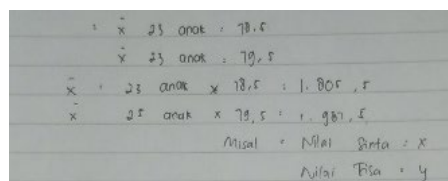 : x̄ 23 anak : 78,5
x̄ 23 anak : 79,5
x̄ : 23 anak x 78,5 : 1.805,5
x̄ 25 anak x 79,5 : 1.987,5
Misal : Nilai Sinta : x
Nilai Tisa : y